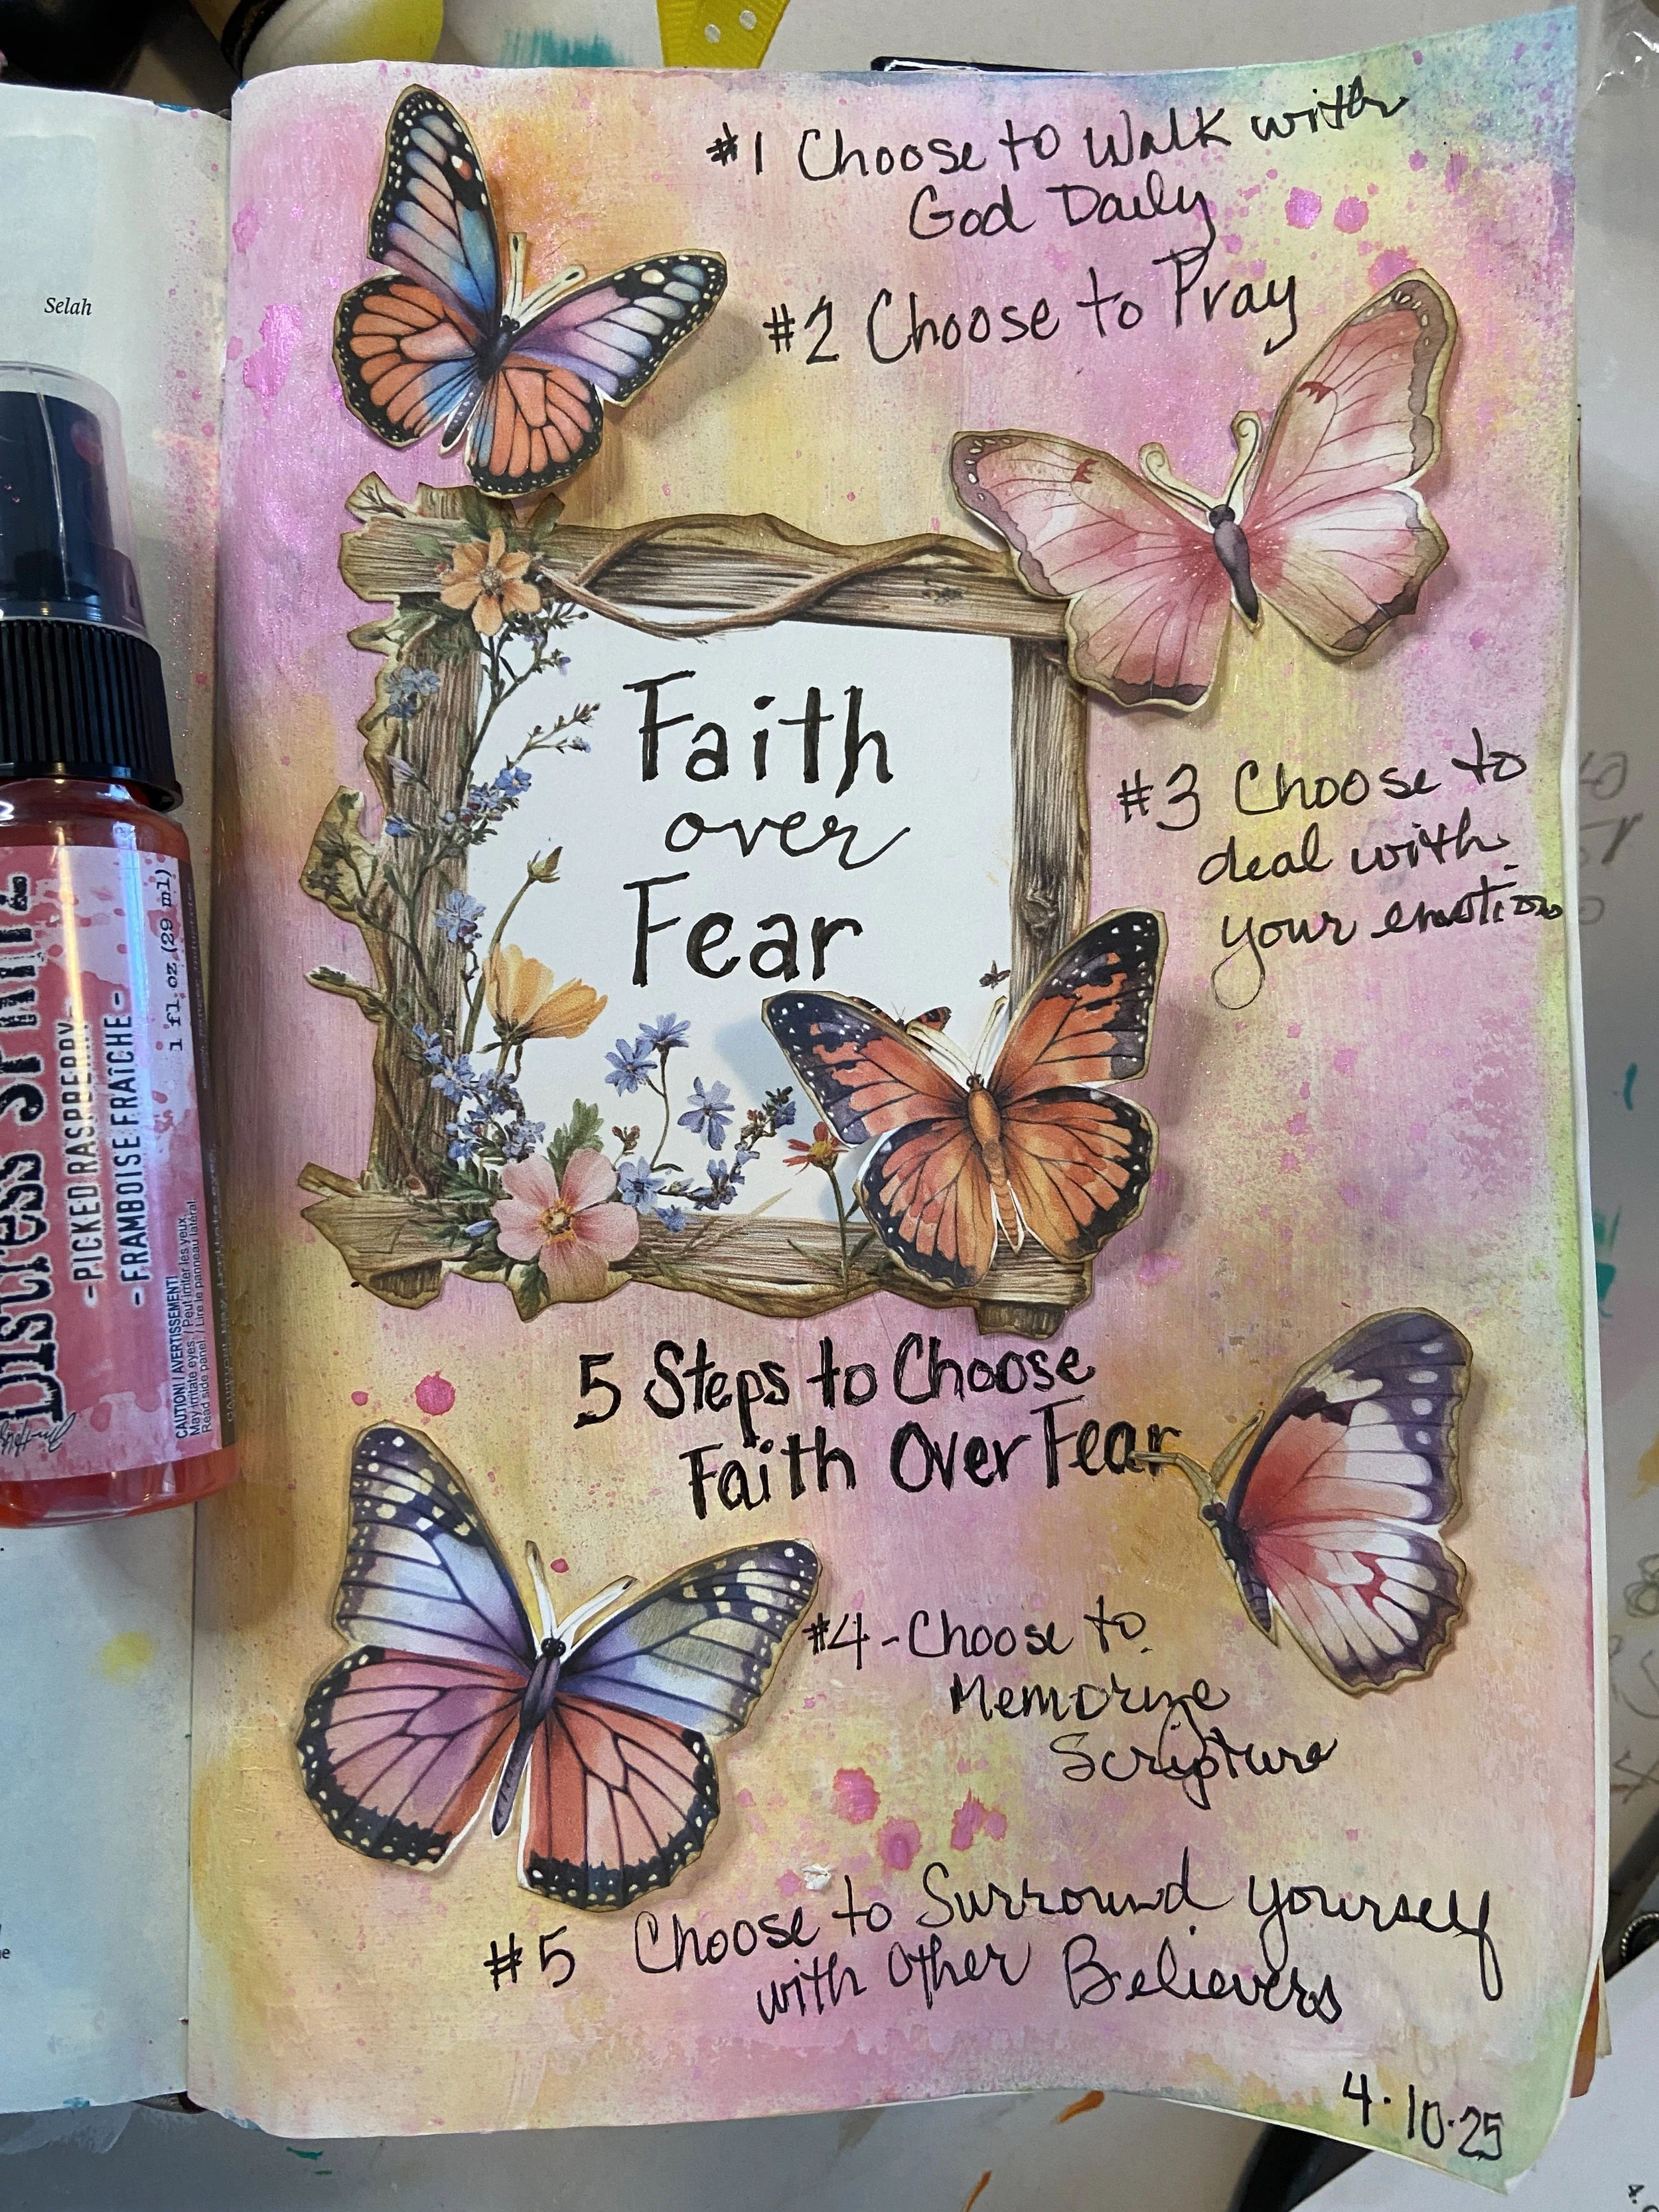 Selah
#1 Choose to Walk with
God Daily
#2 Choose to Pray
Faith
over
Fear
#3 Choose to
deal with
your emotions
5 Steps to Choose
Faith Over Fear
#4 - Choose to
Memorize
Scripture
#5 Choose to Surround yourself
with Other Believers
4.10.25
Distress
-PICKED RASPBERRY-
-FRAMBOISE FRAÎCHE-
1 fl.oz.(29 ml)
CAUTION! / AVERTISSEMENT!
May irritate eyes. / Peut irriter les yeux.
Read side panel. / Lire le panneau latéral